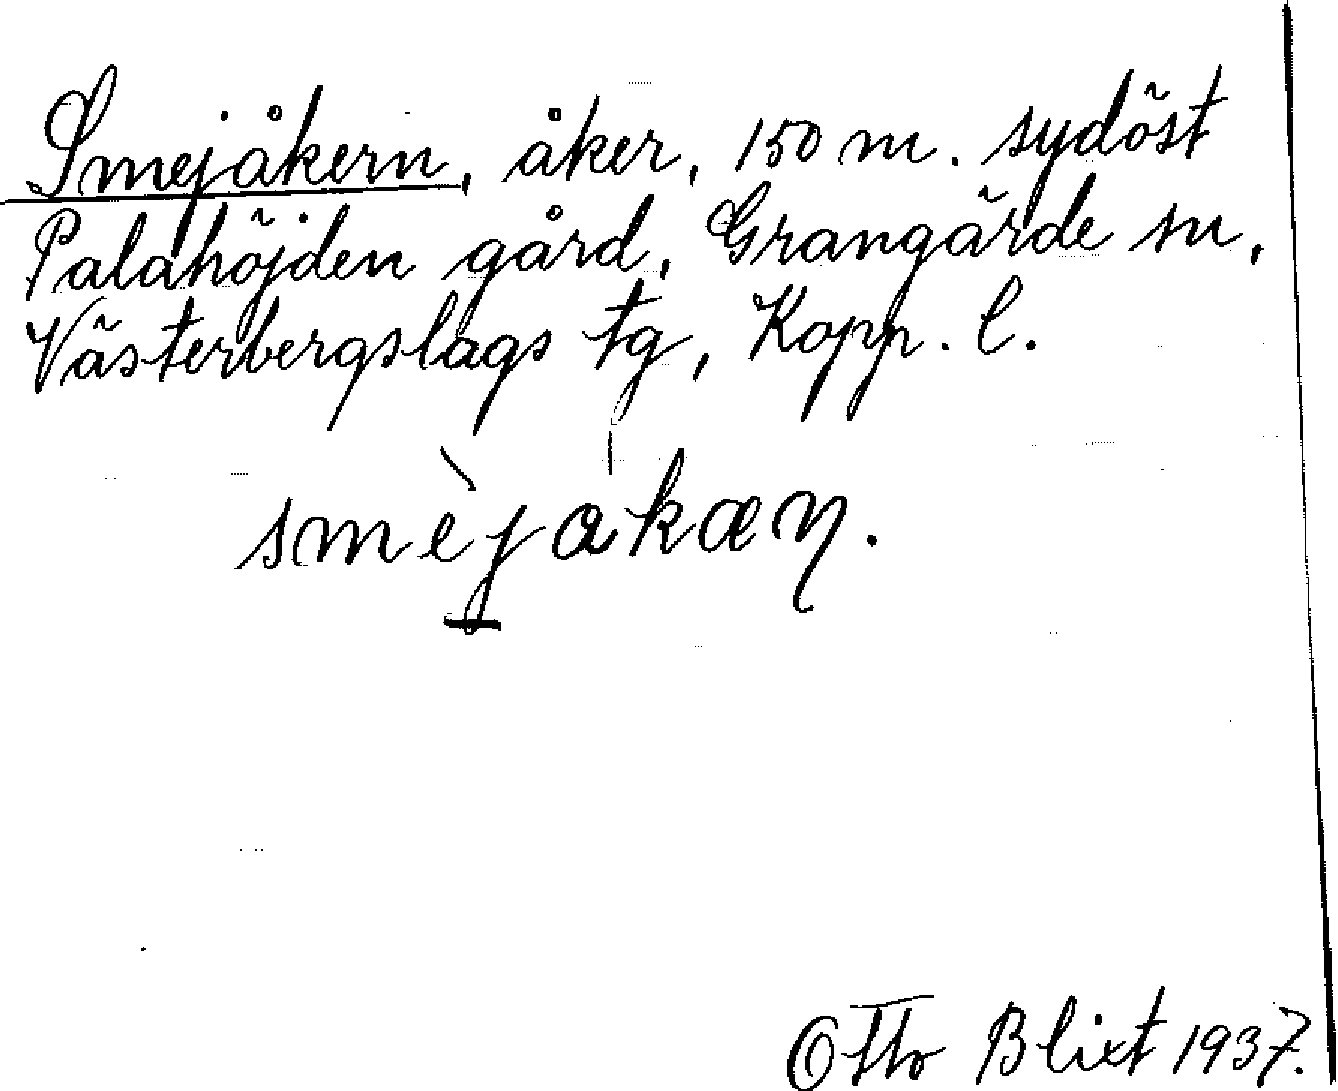 Smejåkern, åker, 150 m. sydöst
Palahöjden gård, Grangärde sn,
Västerbergslags tg, Kopp. l.
smèjakæŋ.
Otto Blixt 1937.